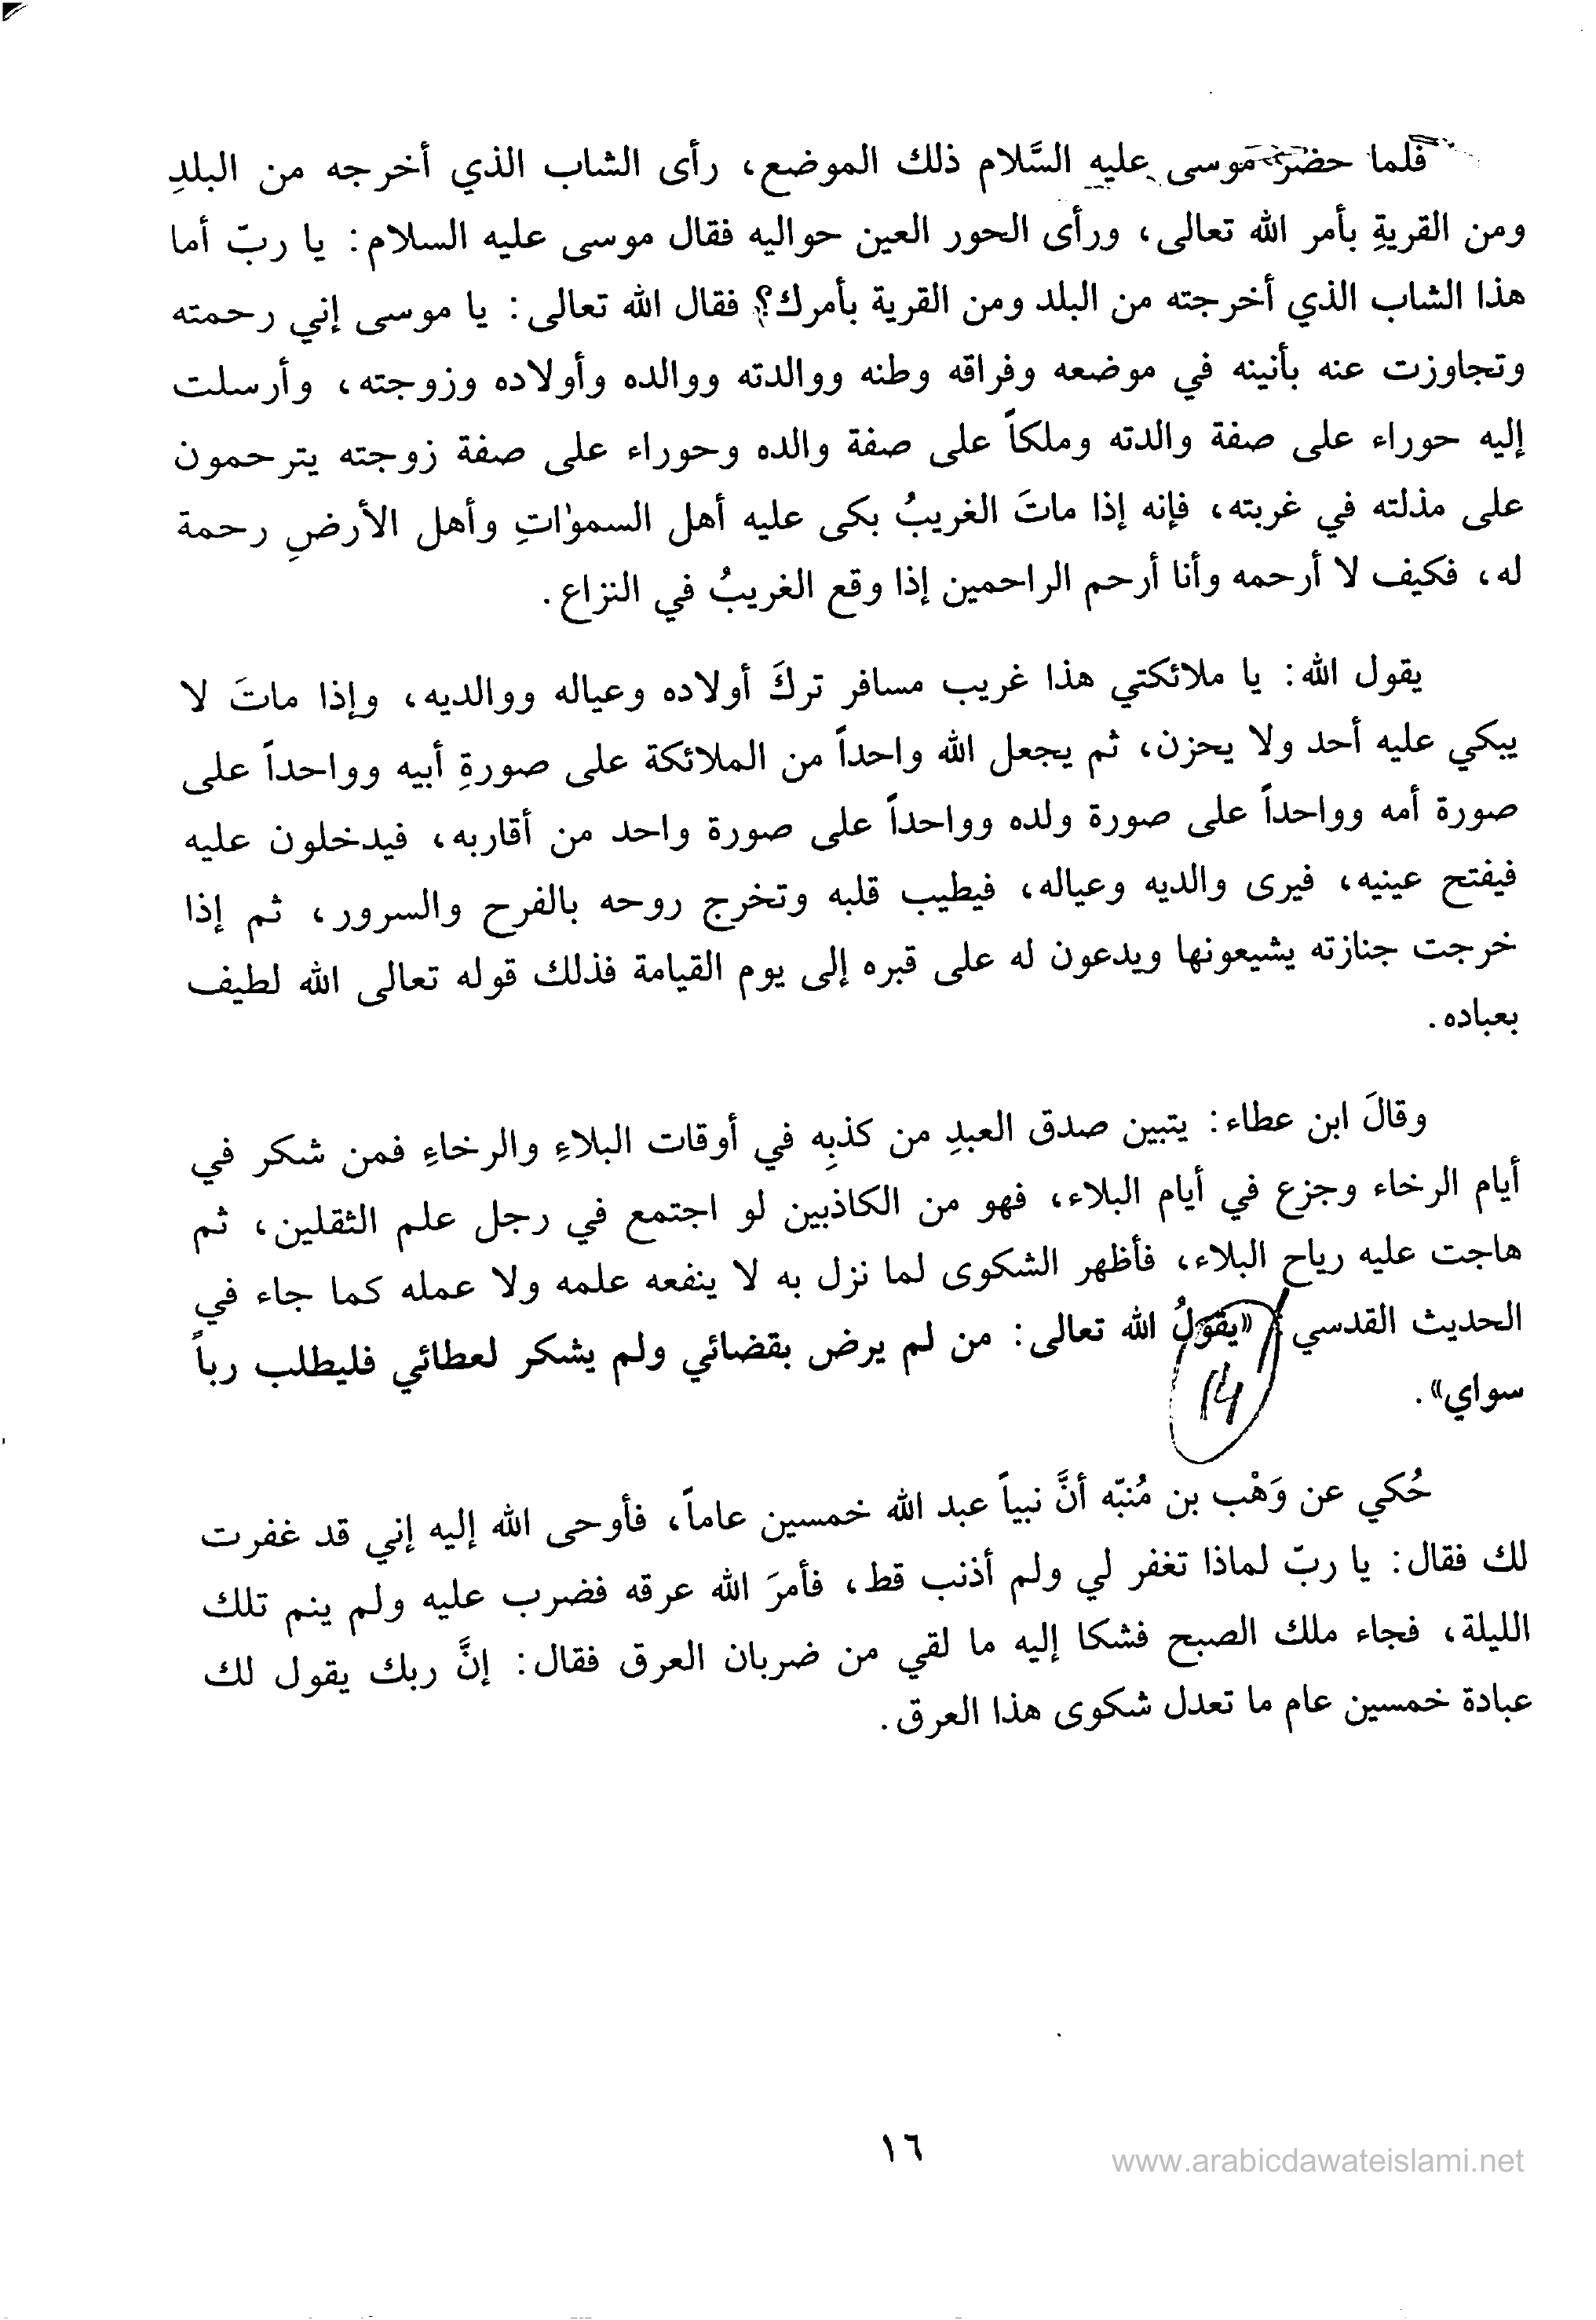 فلما حضر موسى عليه السَّلام ذلك الموضع، رأى الشاب الذي أخرجه من البلدِ
ومن القريةِ بأمر الله تعالى، ورأى الحور العين حواليه فقال موسى عليه السلام: يا ربّ أما
هذا الشاب الذي أخرجته من البلد ومن القرية بأمرك؟ فقال الله تعالى: يا موسى إني رحمته
وتجاوزت عنه بأنينه في موضعه وفراقه وطنه ووالدته ووالده وأولاده وزوجته، وأرسلت
إليه حوراء على صفة والدته وملكاً على صفة والده وحوراء على صفة زوجته يترحمون
على مذلته في غربته، فإنه إذا ماتَ الغريبُ بكى عليه أهل السموٰاتِ وأهل الأرضِ رحمة
له، فكيف لا أرحمه وأنا أرحم الراحمين إذا وقع الغريبُ في النزاع.
يقول الله: يا ملائكتي هذا غريب مسافر تركَ أولاده وعياله ووالديه، وإذا ماتَ لا
يبكي عليه أحد ولا يحزن، ثم يجعل الله واحداً من الملائكة على صورةِ أبيه وواحداً على
صورة أمه وواحداً على صورة ولده وواحداً على صورة واحد من أقاربه، فيدخلون عليه
فيفتح عينيه، فيرى والديه وعياله، فيطيب قلبه وتخرج روحه بالفرح والسرور، ثم إذا
خرجت جنازته يشيعونها ويدعون له على قبره إلى يوم القيامة فذلك قوله تعالى الله لطيف
بعباده.
وقالَ ابن عطاء: يتبين صدق العبدِ من كذبِه في أوقات البلاءِ والرخاءِ فمن شكر في
أيام الرخاء وجزع في أيام البلاء، فهو من الكاذبين لو اجتمع في رجل علم الثقلين، ثم
هاجت عليه رياح البلاء، فأظهر الشكوى لما نزل به لا ينفعه علمه ولا عمله كما جاء في
الحديث القدسي: «يقولُ الله تعالى: من لم يرض بقضائي ولم يشكر لعطائي فليطلب رباً
سواي».
14
حُكي عن وَهْب بن مُنبّه أنَّ نبياً عبد الله خمسين عاماً، فأوحى الله إليه إني قد غفرت
لك فقال: يا ربّ لماذا تغفر لي ولم أذنب قط، فأمرَ الله عرقه فضرب عليه ولم ينم تلك
الليلة، فجاء ملك الصبح فشكا إليه ما لقي من ضربان العرق فقال: إنَّ ربك يقول لك
عبادة خمسين عام ما تعدل شكوى هذا العرق.
١٦
www.arabicdawateislami.net